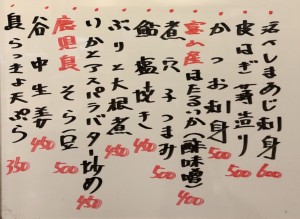 活〆しまあじ刺身 600
皮はぎ薄造り 500
かつお刺身 500
富山産ほたるいか(酢味噌) 400
煮穴子つまみ 450
鮎塩焼き 450
ぶりと大根煮 450
いかとアスパラバター炒め 450
鹿児島そら豆 500
谷中生姜 450
島らっきょ天ぷら 350